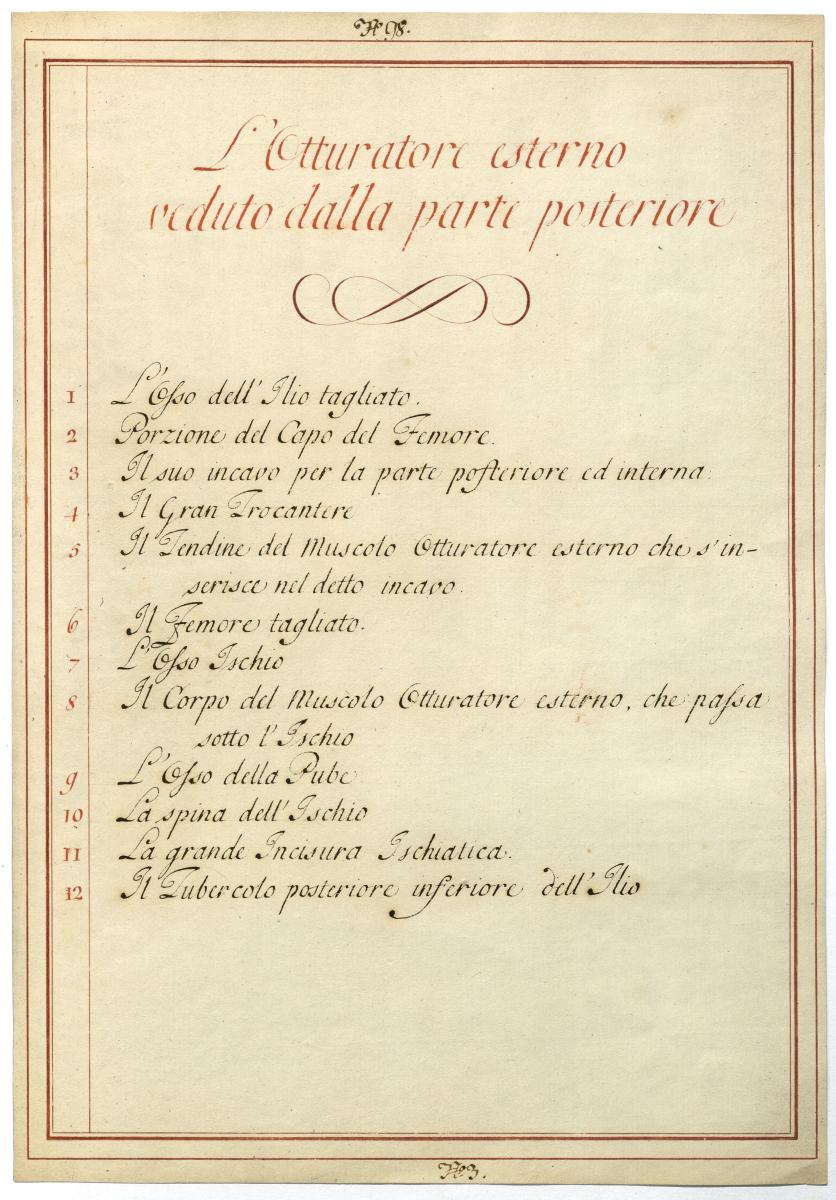 N 98.
L'Otturatore esterno
veduto dalla parte posteriore
1 L'Osso dell'Ilio tagliato.
2 Porzione del Capo del Femore.
3 Il suo incavo per la parte posteriore ed interna.
4 Il Gran Trocantere
5 Il Tendine del Muscolo Otturatore esterno che s'in-
serisce nel detto incavo.
6 Il Femore tagliato.
7 L'Osso Ischio
8 Il Corpo del Muscolo Otturatore esterno, che passa
sotto l'Ischio
9 L'Osso della Pube
10 La spina dell'Ischio
11 La grande Incisura Ischiatica.
12 Il Tubercolo posteriore inferiore dell'Ilio